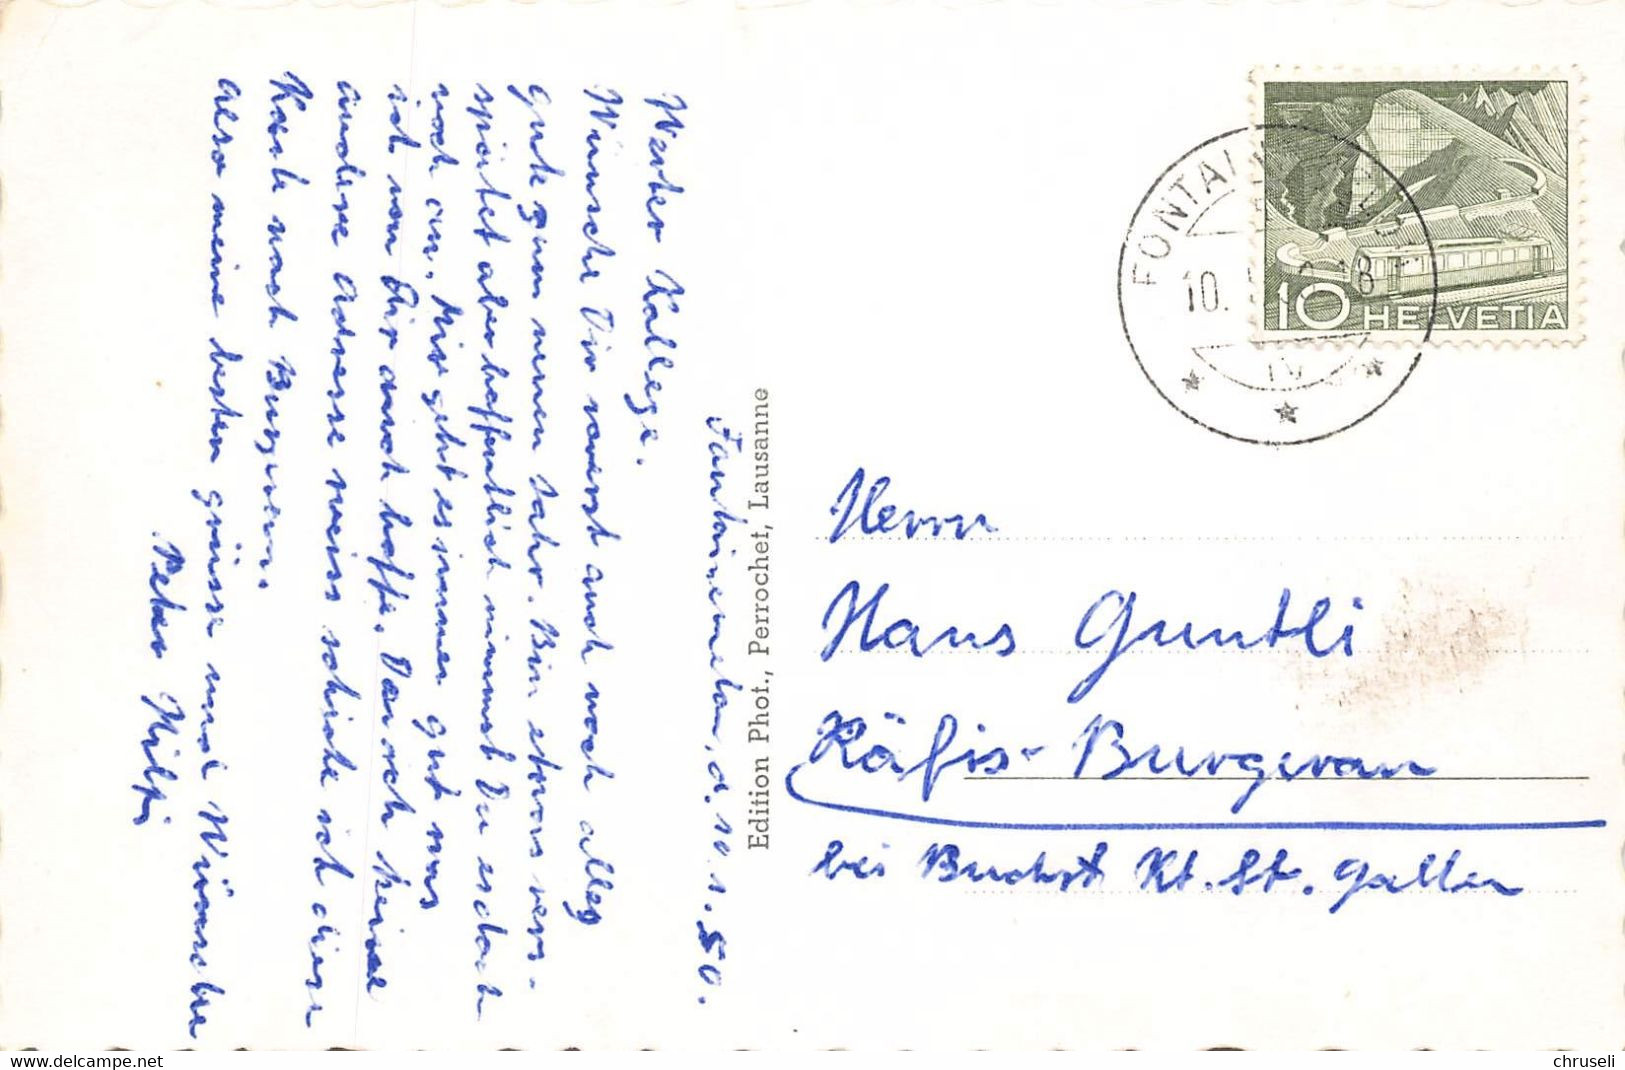 Fontainemelon, d. 10. 1. 50.
Werter Kollege.
Wünsche Dir vorerst auch noch alles
gute zum neuen Jahr. Bin etwas vers-
pätet aber hoffentlich nimmst Du es doch
noch an. Mir geht es immer gut was
ich von Dir auch hoffe. Da ich keine
andere Adresse weiss schicke ich diese
Karte nach Burgeran.
Also meine besten grüsse und Wünsche
Peter Hilpi
Edition Phot., Perrochet, Lausanne
FONTAI
10. 18
10 HELVETIA
Herrn
Hans Guntli
Räfis-Burgeran
bei Buchs Kt. St. Gallen
chruseli